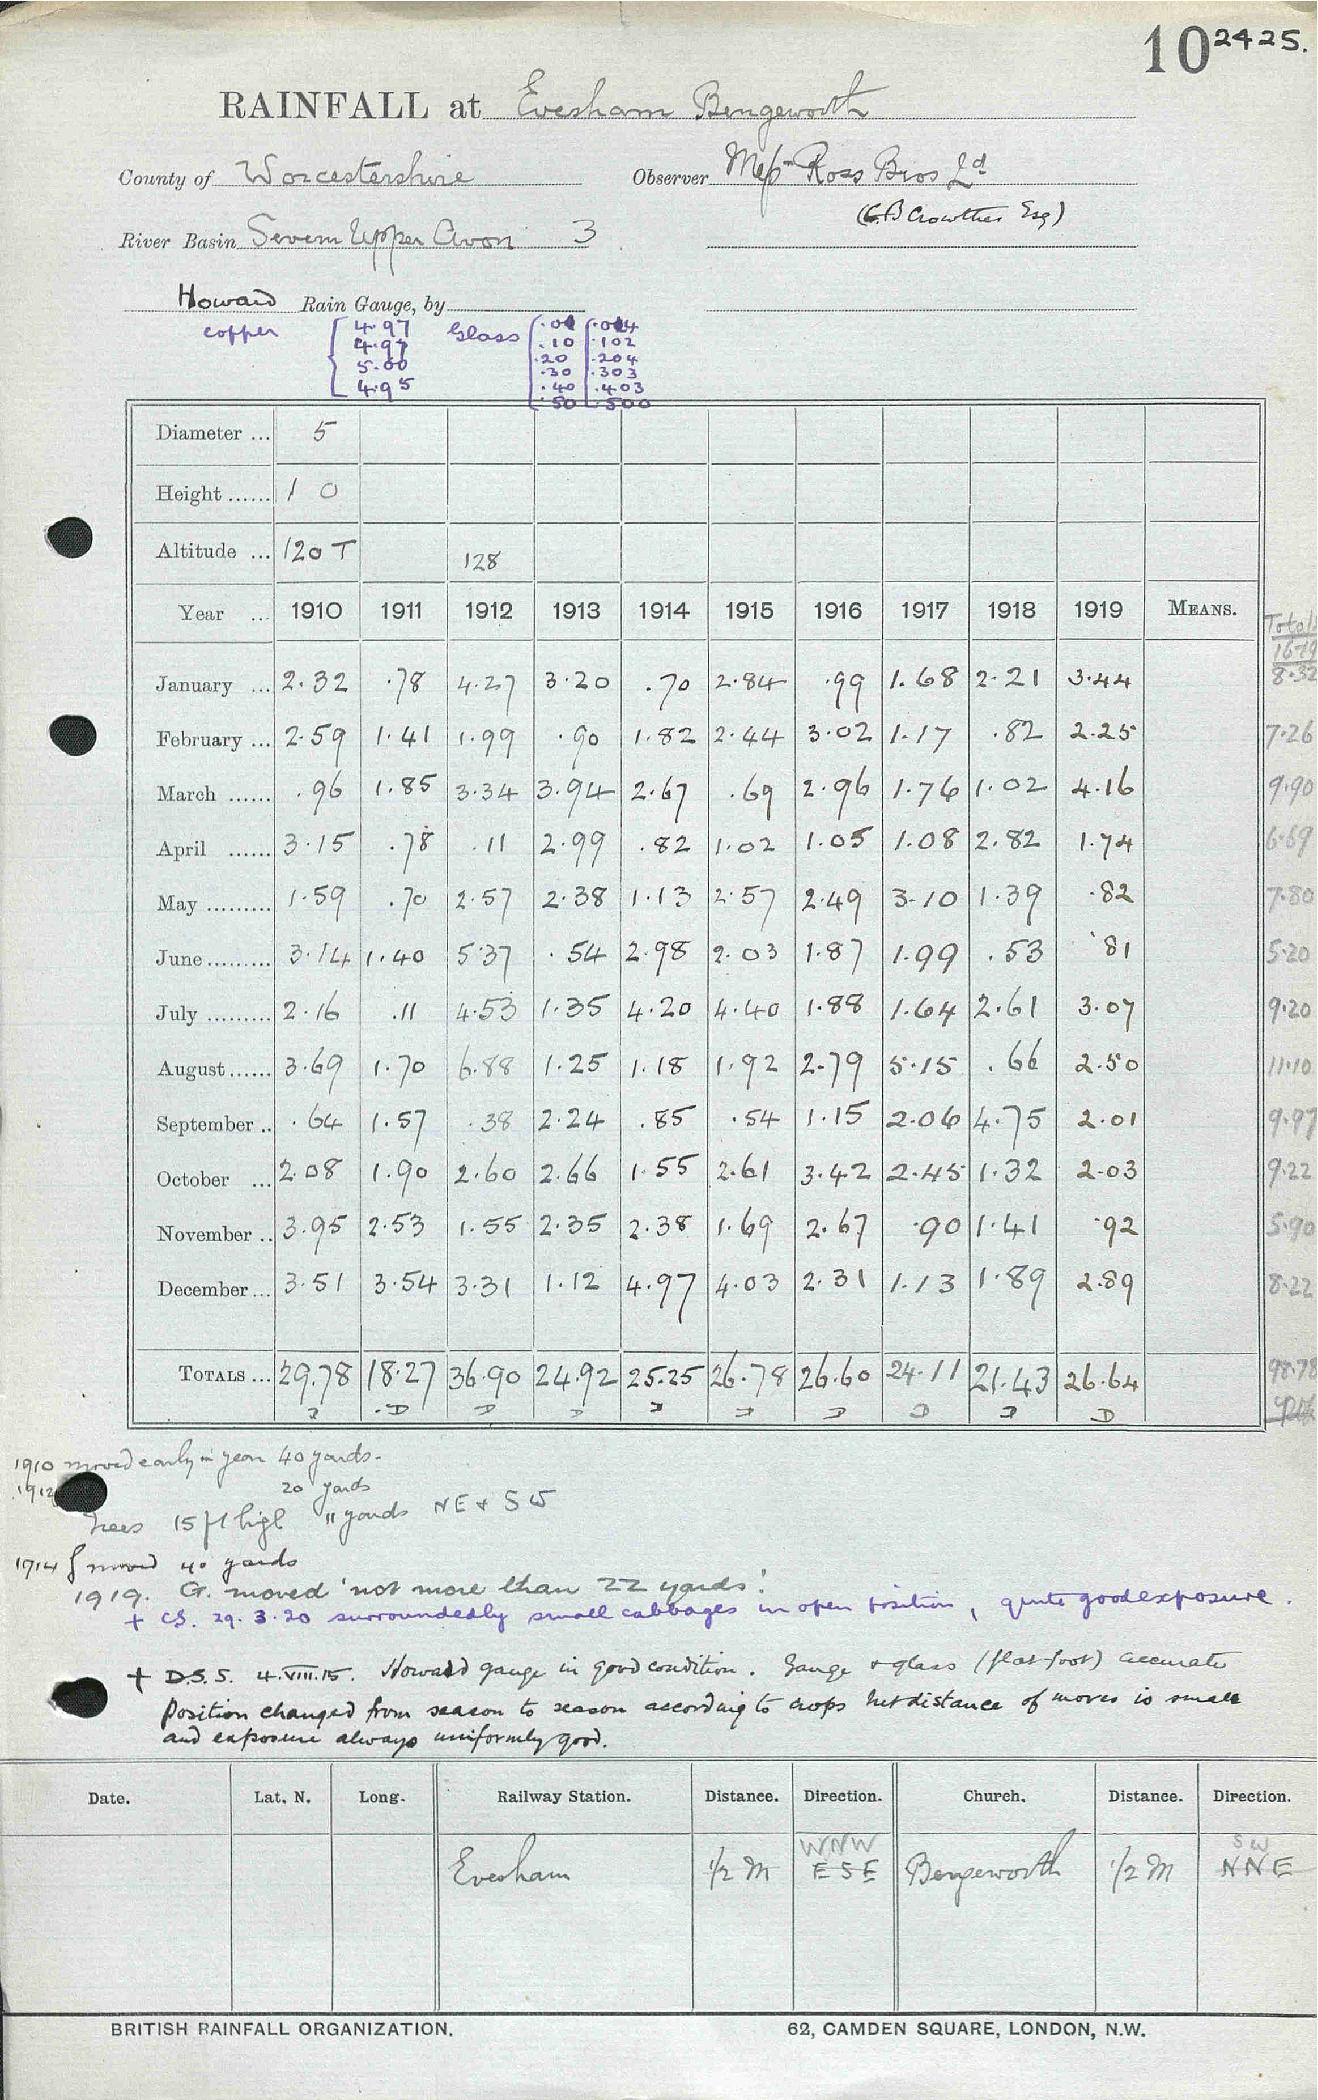 10 2425.
RAINFALL at Evesham Bengeworth
County of Worcestershire Observer Messrs Ross Bros Ld
(C.B Crowther Esq)
River Basin Severn Upper Avon 3
Howard Rain Gauge, by
copper 4.97 Glass .01 .014
4.97 .10 .102
5.00 .20 .204
4.95 .30 .303
.40 .403
.50 .500
Diameter ... 5
Height ...... 1 0
Altitude ... 120 T 128
Year ... 1910 1911 1912 1913 1914 1915 1916 1917 1918 1919 MEANS. Totals
16-19
January ... 2.32 .78 4.27 3.20 .70 2.84 .99 1.68 2.21 3.44 8.32
February ... 2.59 1.41 1.99 .90 1.82 2.44 3.02 1.17 .82 2.25 7.26
March ...... .96 1.85 3.34 3.94 2.67 .69 2.96 1.76 1.02 4.16 9.90
April ...... 3.15 .78 .11 2.99 .82 1.02 1.05 1.08 2.82 1.74 6.69
May ......... 1.59 .70 2.57 2.38 1.13 2.57 2.49 3.10 1.39 .82 7.80
June ......... 3.14 1.40 5.37 .54 2.98 2.03 1.87 1.99 .53 .81 5.20
July ......... 2.16 .11 4.53 1.35 4.20 4.40 1.88 1.64 2.61 3.07 9.20
August ...... 3.69 1.70 6.88 1.25 1.18 1.92 2.79 5.15 .66 2.50 11.10
September .. .64 1.57 .38 2.24 .85 .54 1.15 2.06 4.75 2.01 9.97
October ... 2.08 1.90 2.60 2.66 1.55 2.61 3.42 2.45 1.32 2.03 9.22
November .. 3.95 2.53 1.55 2.35 2.38 1.69 2.67 .90 1.41 .92 5.90
December ... 3.51 3.54 3.31 1.12 4.97 4.03 2.31 1.13 1.89 2.89 8.22
TOTALS ... 29.78 18.27 36.90 24.92 25.25 26.78 26.60 24.11 21.43 26.64 98.78
D D D D D D D D D D
1910 moved early in year 40 yards.
1912 20 yards
Trees 15 ft high 11 yards NE & SW
1914 { moved 40 yards
1919. G. moved 'not more than 22 yards'.
+ CS. 29.3.20 surrounded by small cabbages in open position, quite good exposure.
+ D.S.S. 4.VIII.15. Howard gauge in good condition. Gauge & glass (flat-foot) accurate
Position changed from season to season according to crops but distance of moves is small
and exposure always uniformly good.
Date. Lat. N. Long. Railway Station. Distance. Direction. Church. Distance. Direction.
WNW SW
Evesham 1/2 M ESE Bengeworth 1/2 M NNE
BRITISH RAINFALL ORGANIZATION. 62, CAMDEN SQUARE, LONDON, N.W.